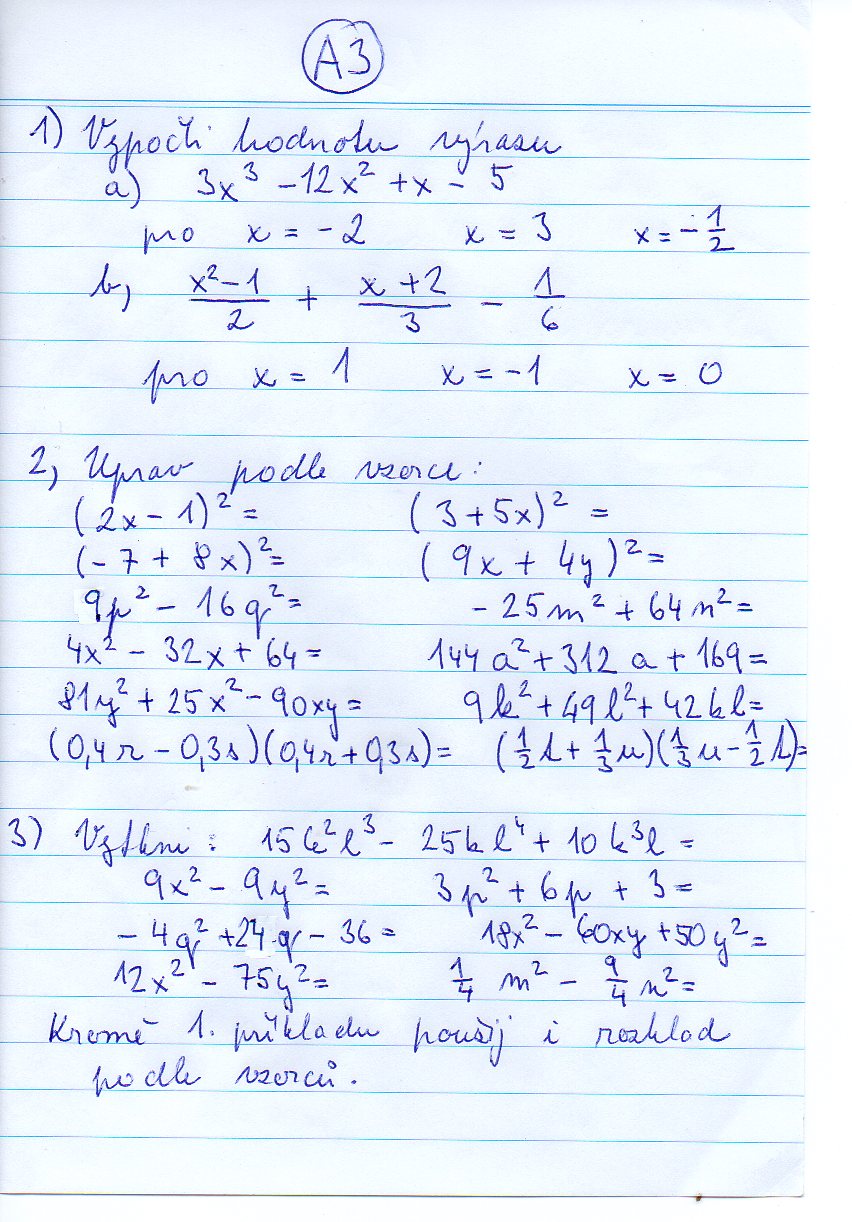 A3
1) Vypočti hodnotu výrasu
a) 3x³ - 12x² + x - 5
pro x = -2 x = 3 x = -1/2
b, (x² - 1)/2 + (x + 2)/3 - 1/6
pro x = 1 x = -1 x = 0
2, Uprav podle vzorce:
(2x - 1)² = (3 + 5x)² =
(-7 + 8x)² = (9x + 4y)² =
9p² - 16q² = - 25m² + 64n² =
4x² - 32x + 64 = 144a² + 312a + 169 =
81y² + 25x² - 90xy = 9k² + 49l² + 42kl =
(0,4r - 0,3s)(0,4r + 0,3s) = (1/2 t + 1/3 u)(1/3 u - 1/2 t) =
3) Vytkni: 15k²l³ - 25kl⁴ + 10k³l =
9x² - 9y² = 3p² + 6p + 3 =
- 4q² + 24q - 36 = 18x² - 60xy + 50y² =
12x² - 75y² = 1/4 m² - 9/4 n² =
Kromě 1. příkladu použij i rozklad
podle vzorců.